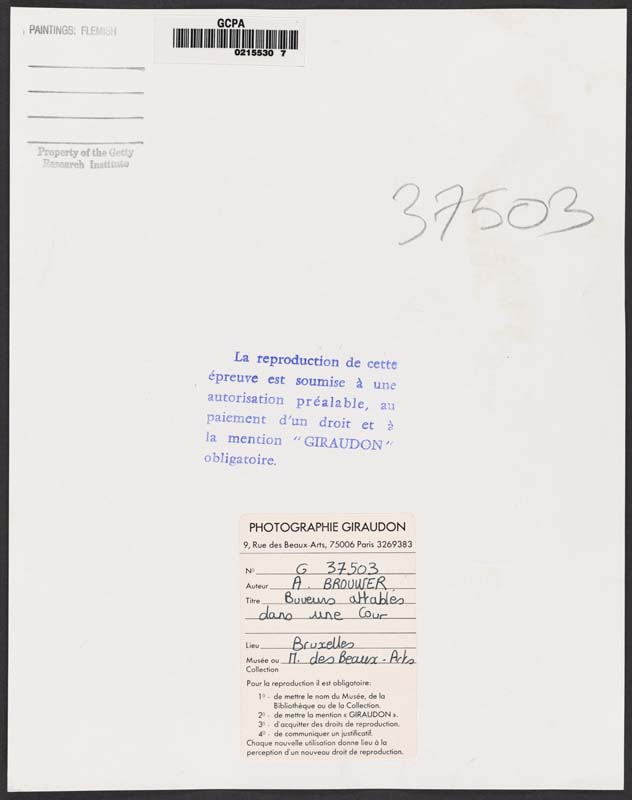 PAINTINGS: FLEMISH
GCPA
0215530 7
Property of the Getty
Research Institute
37503
La reproduction de cette
épreuve est soumise à une
autorisation préalable, au
paiement d'un droit et à
la mention "GIRAUDON"
obligatoire.
PHOTOGRAPHIE GIRAUDON
9, Rue des Beaux-Arts, 75006 Paris 3269383
N° G 37503
Auteur A. BROUWER
Titre Buveurs attablés
dans une Cour
Lieu Bruxelles
Musée ou M. des Beaux-Arts
Collection
Pour la reproduction il est obligatoire:
1° - de mettre le nom du Musée, de la
Bibliothèque ou de la Collection.
2° - de mettre la mention « GIRAUDON ».
3° - d'acquitter des droits de reproduction.
4° - de communiquer un justificatif.
Chaque nouvelle utilisation donne lieu à la
perception d'un nouveau droit de reproduction.